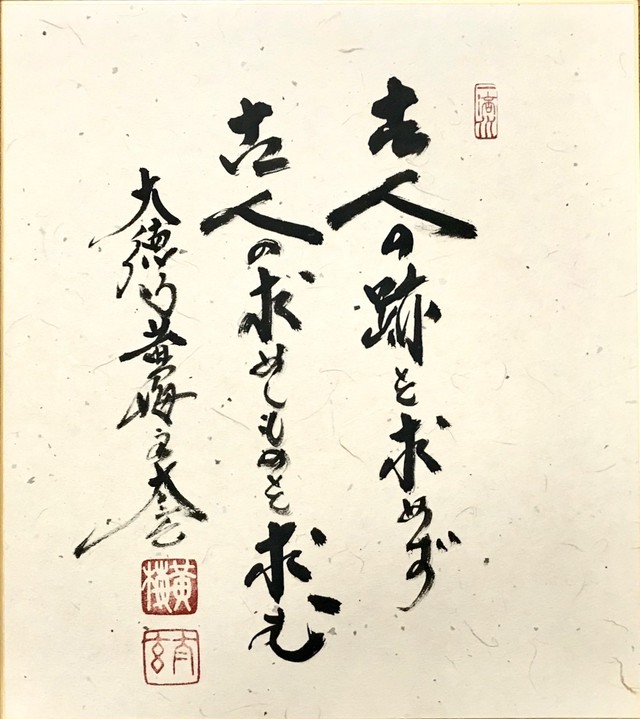 古人の跡を求めず
古人の求めしものを求む
大徳寺黄梅主太玄
黄梅
太玄